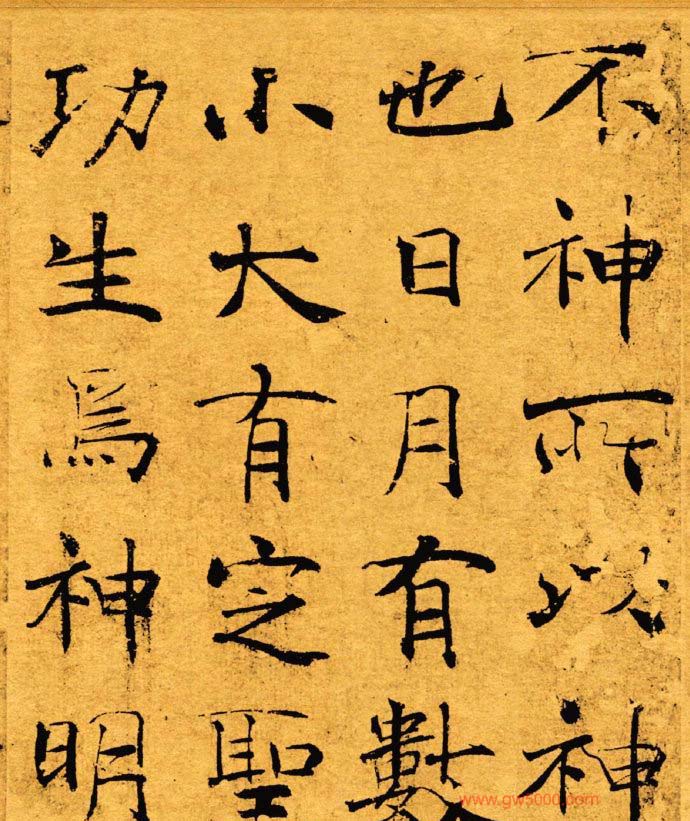 不神所以神
也日月有數
小大有定聖
功生焉神明
www.gw5000.com